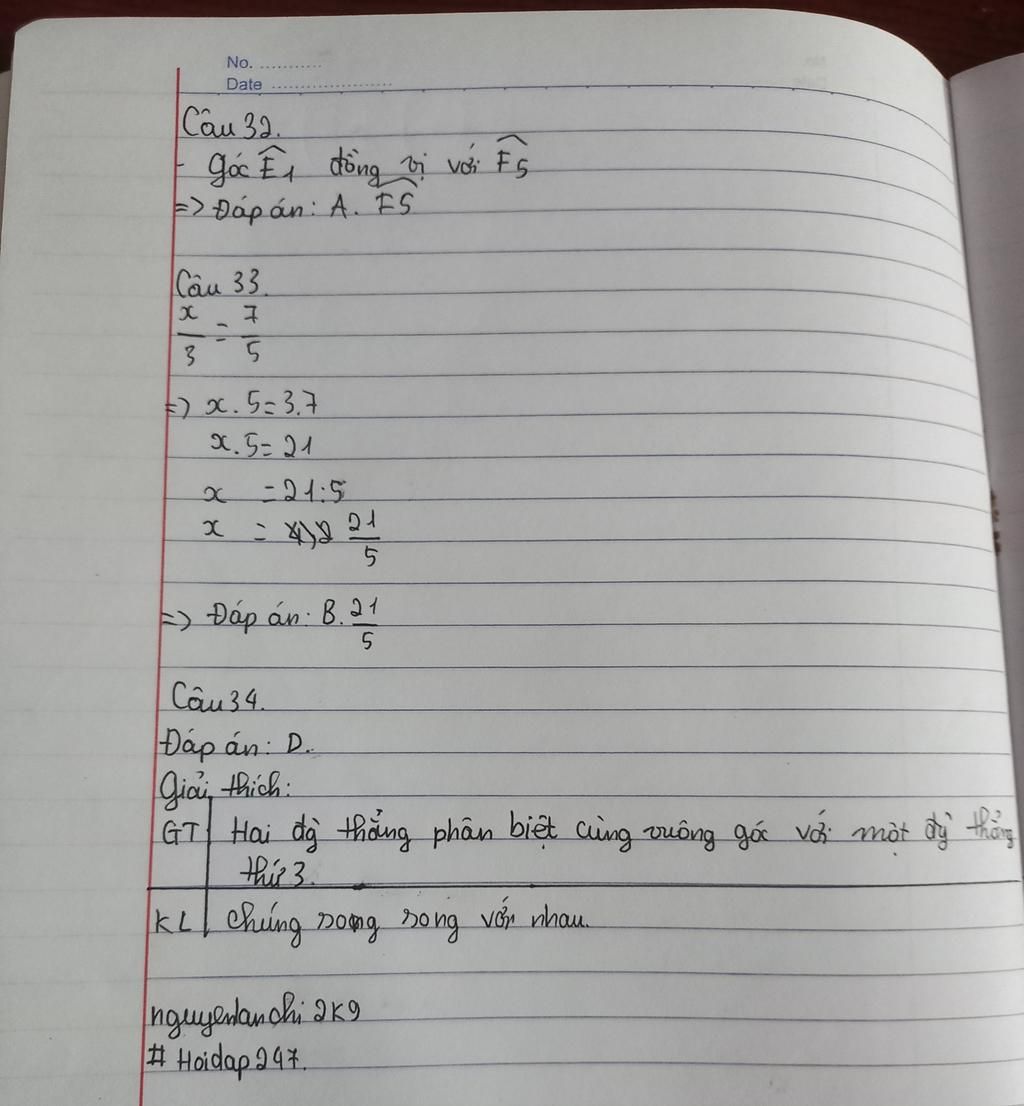 No. ...........
Date ......................
Câu 32.
- Góc Ê1 đồng vị với F̂5
=> Đáp án: A. F̂5
Câu 33.
x/3 = 7/5
=> x.5=3.7
x.5=21
x =21:5
x = 21/5
=> Đáp án: B. 21/5
Câu 34.
Đáp án: D.
Giải thích:
GT Hai đg̀ thẳng phân biệt cùng vuông góc với một đg̀ thẳng
thứ 3.
KL Chúng song song với nhau.
nguyenlanchi2k9
# Hoidap247.